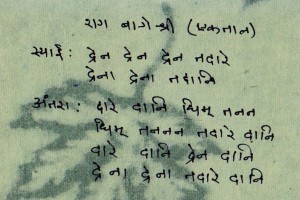 राग बागेश्री (एकतान)
स्थाई: द्रेन द्रेन द्रेन तदारे
द्रेना द्रेना तदानि
अंतरा: दारे दानि धिम् तनन
धिम् तननन तदारे दानि
दारे दानि द्रेन दानि
द्रेना द्रेना तदारे दानि